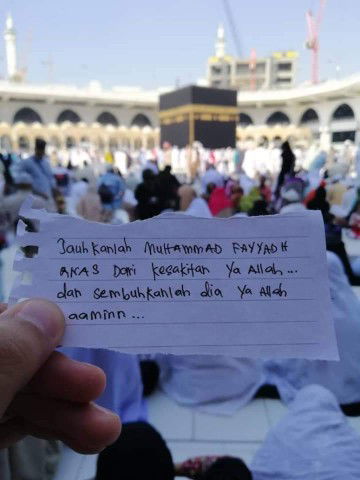 Jauhkanlah MUHAMMAD FAYYADH
ANAS Dari kesakitan Ya Allah...
dan sembuhkanlah dia ya Allah
aaminn...